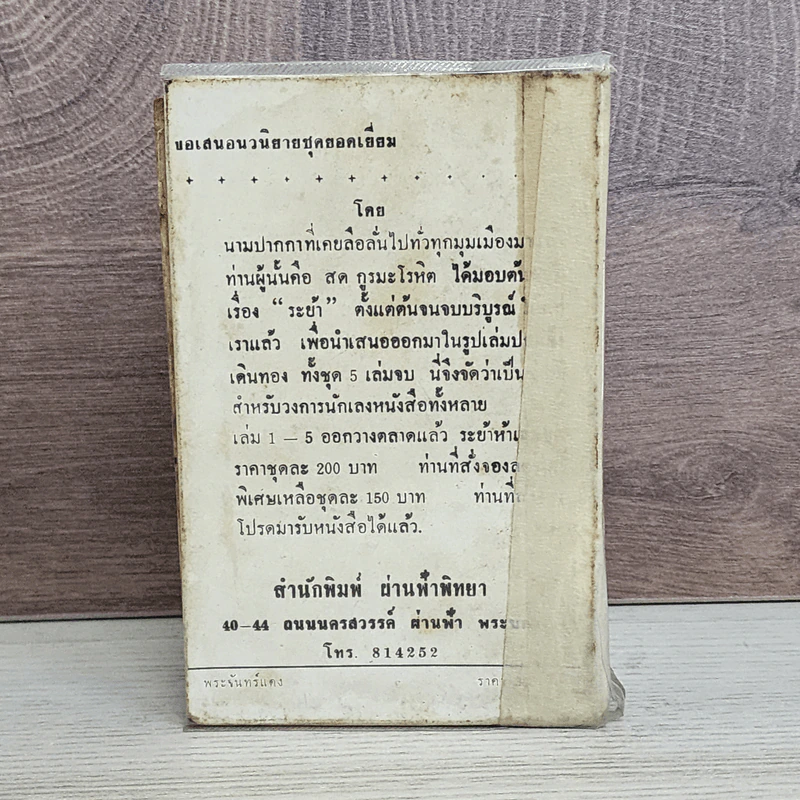 ขอเสนอนวนิยายชุดยอดเยี่ยม
โดย
นามปากกาที่เคยลือลั่นไปทั่วทุกมุมเมืองมา
ท่านผู้นั้นคือ สด กูรมะโรหิต ได้มอบต้น
เรื่อง “ระย้า” ตั้งแต่ต้นจนจบบริบูรณ์
เราแล้ว เพื่อนำเสนอออกมาในรูปเล่มป
เดินทอง ทั้งชุด 5 เล่มจบ นี่จึงจัดว่าเป็น
สำหรับวงการนักเลงหนังสือทั้งหลาย
เล่ม 1 — 5 ออกวางตลาดแล้ว ระย้าห้า
ราคาชุดละ 200 บาท ท่านที่สั่งจอง
พิเศษเหลือชุดละ 150 บาท ท่านที่
โปรดมารับหนังสือได้แล้ว.
สำนักพิมพ์ ผ่านฟ้าพิทยา
40-44 ถนนนครสวรรค์ ผ่านฟ้า พระ
โทร. 814252
พระจันทร์แดง